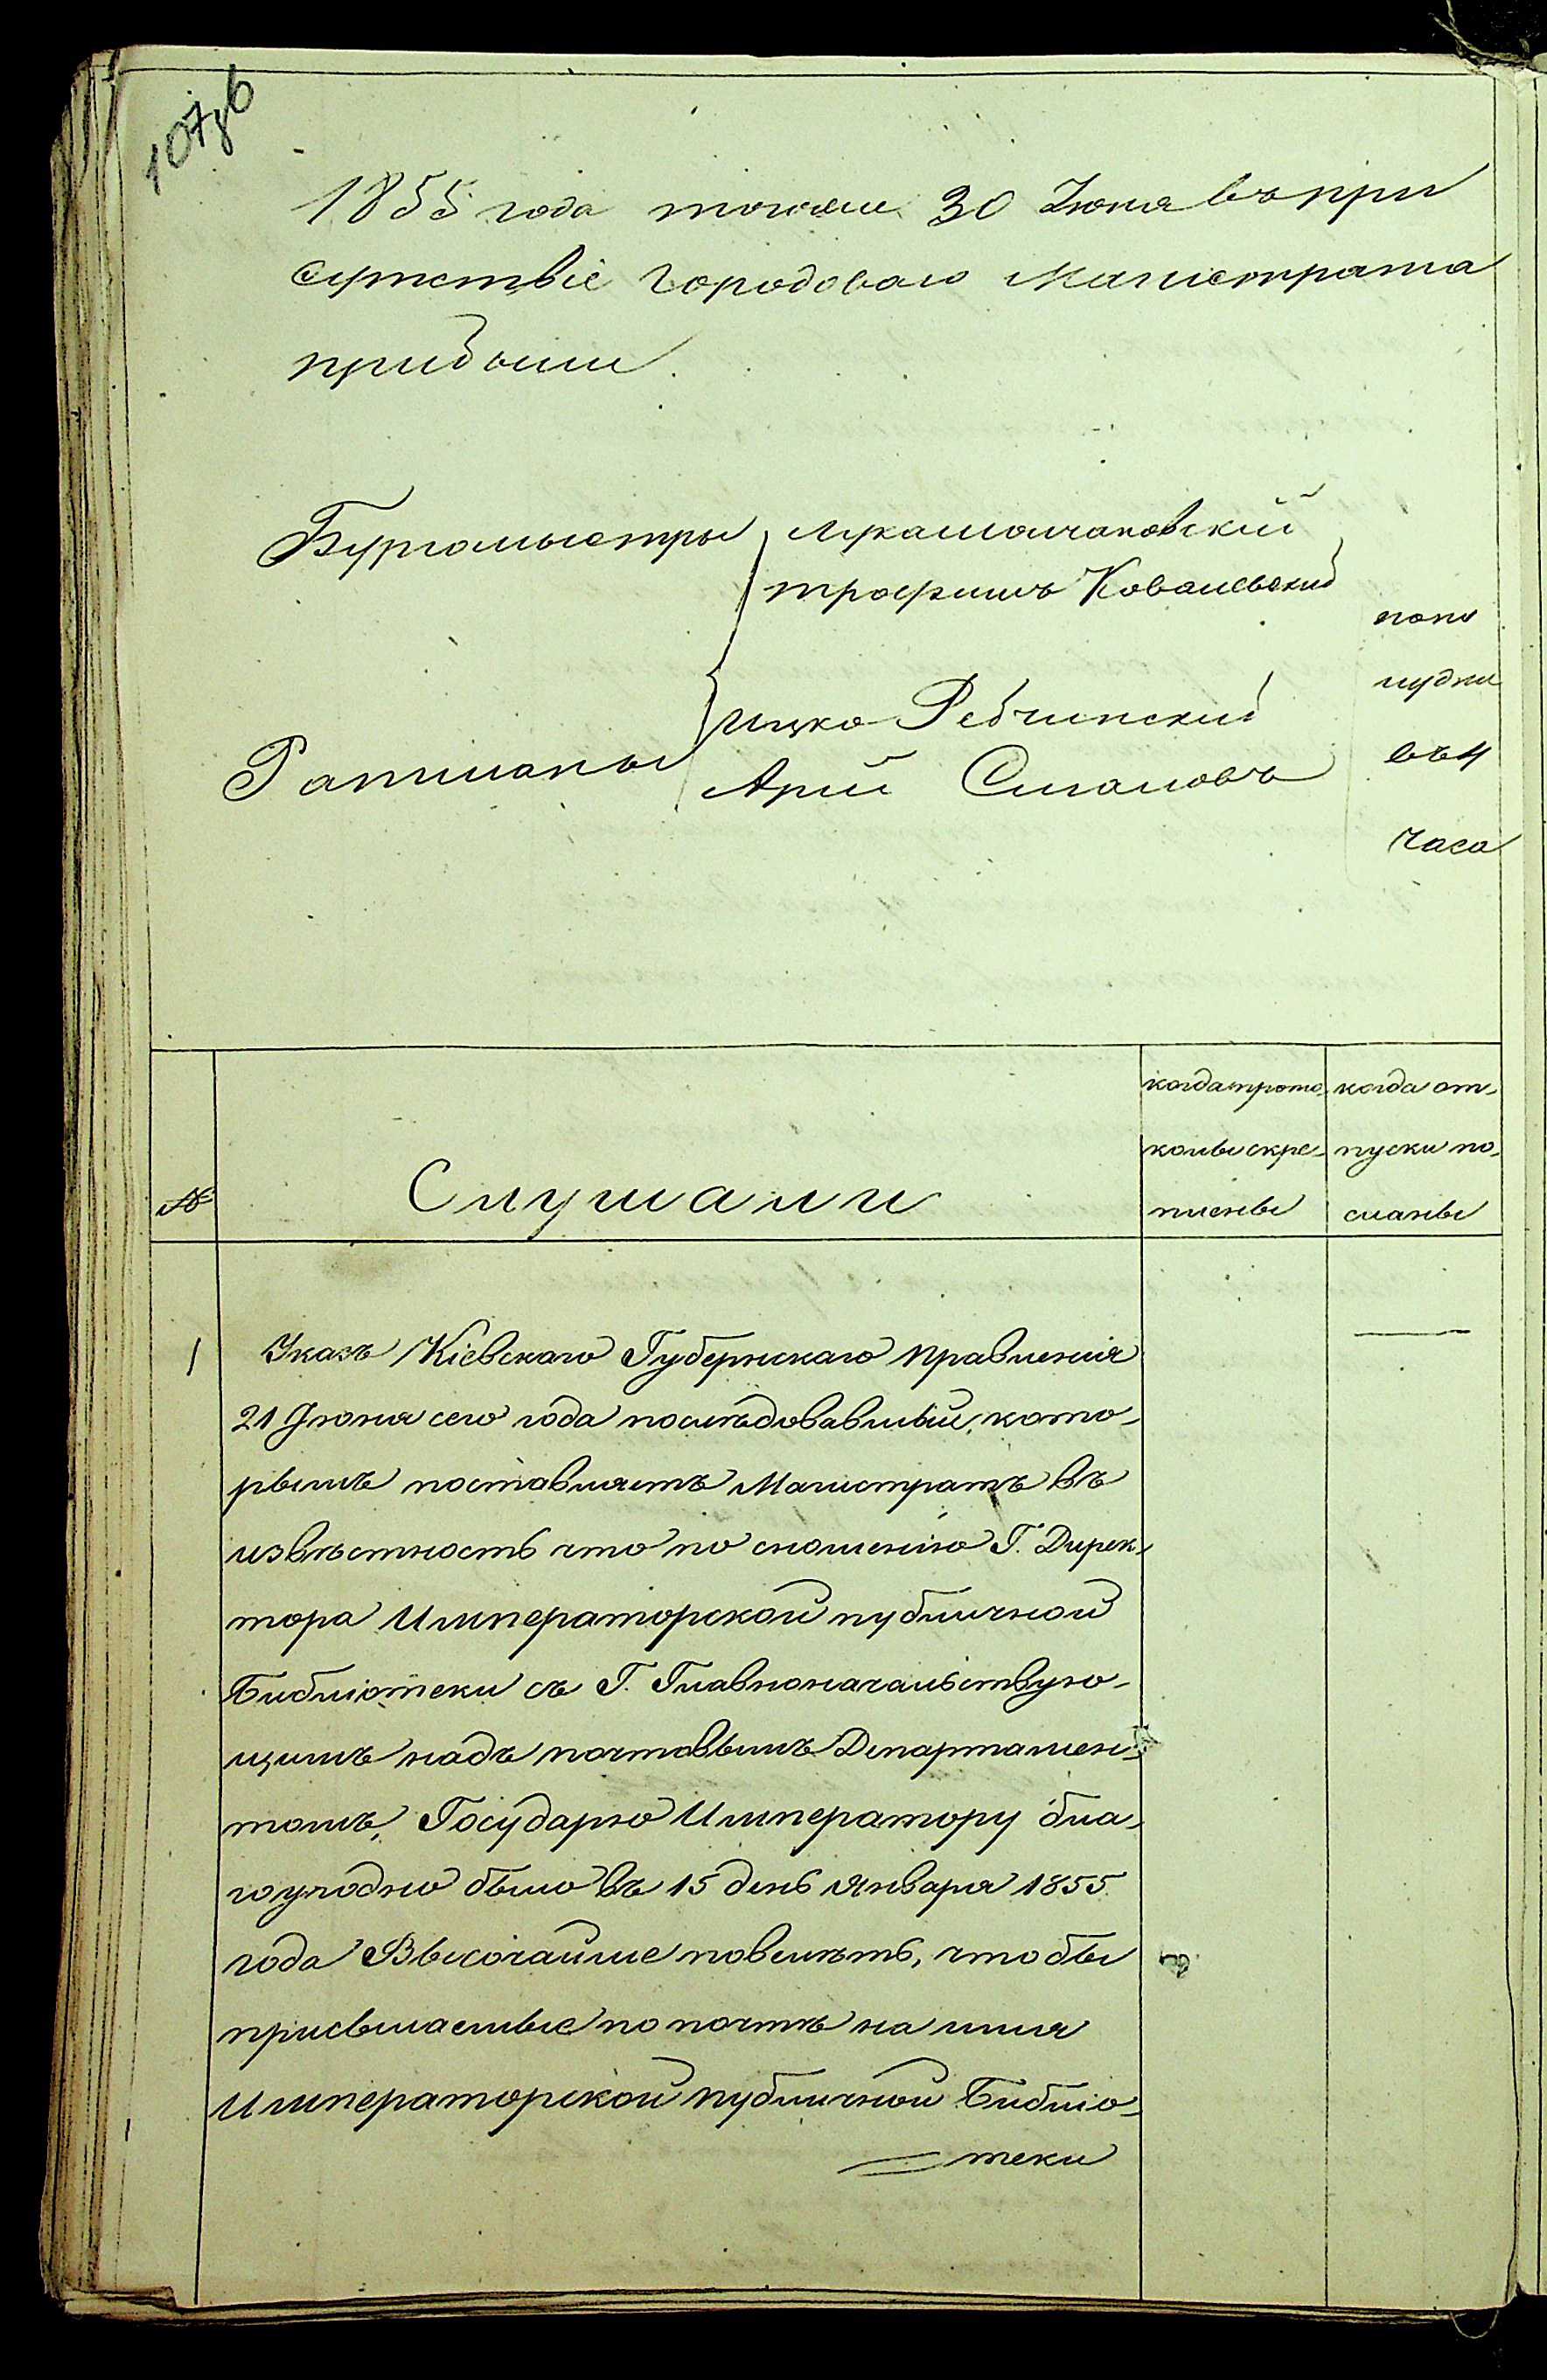 107зб
1855 года июня 30 Июня въ при
сутствіе Городоваго Магистрата
прибыли.
Бургомыстры
Лукашъ
трофимъ Ковалевскій
Ратманы
Ицко Ребчинскій
Арій Сигаловъ
попо
лудни
въ 4
часа
№
Слушали
когда прото-
колы скре-
плены
когда от-
пуски по-
сланы
1
Указъ Кіевскаго Губернскаго правленія
21 Іюня сего года послѣдовавшый, кото-
рымъ поставляетъ Магистратъ въ
извѣстность что по сношенію Г. Дирек-
тора Императорской публичной
Библіотеки съ Г. Главноначальствую-
щимъ надъ почтовымъ Департамен-
томъ, Государю Императору бла-
гоугодно было въ 15 день Января 1855.
года Высочайше повелѣть, что бы
присылаемые по почтѣ на имя
Императорской публичной Библіо-
теки